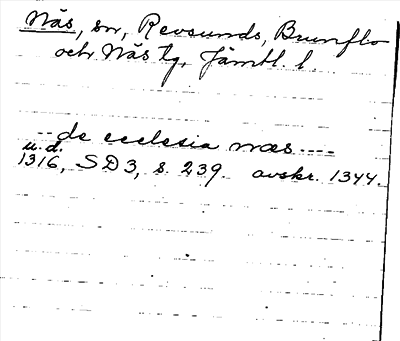 Näs, sn, Revsunds, Brunflo
och Näs tg, Jämtl. l.
-- de ecclesia næs ----
u.d.
1316, SD 3, s. 239. avskr. 1344.